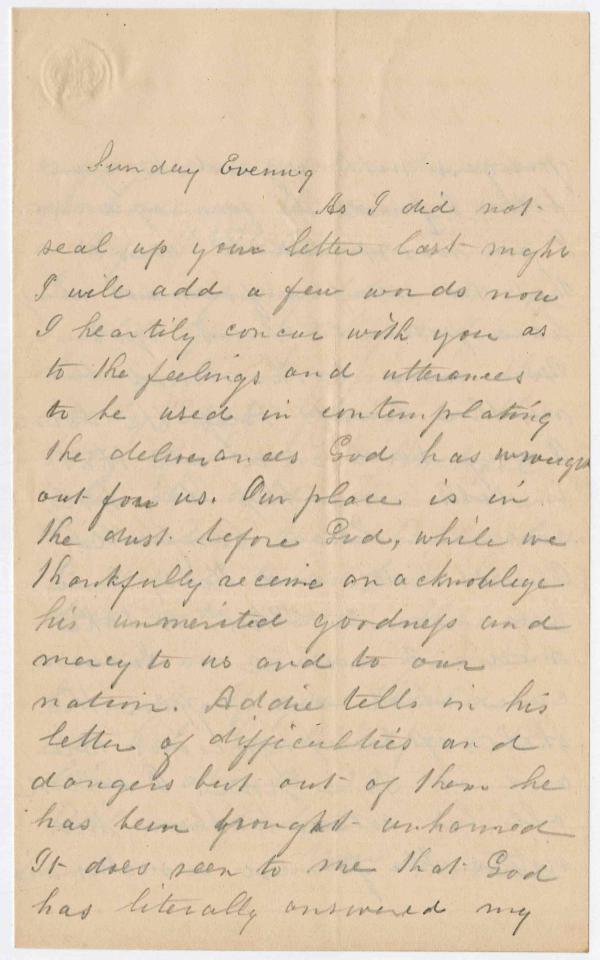 Sunday Evening
As I did not
seal up your letter last night
I will add a few words now
I heartily concur with you as
to the feelings and utterances
to be used in contemplating
the deliverances God has wrought
out for us. Our place is in
the dust before God, while we
thankfully receive an acknoblege
his unmerited goodness and
mercy to us and to our
nation. Addie tells in his
letter of difficulties and
dangers but out of them he
has been brought unharmed
It does seem to me that God
has literally answered my